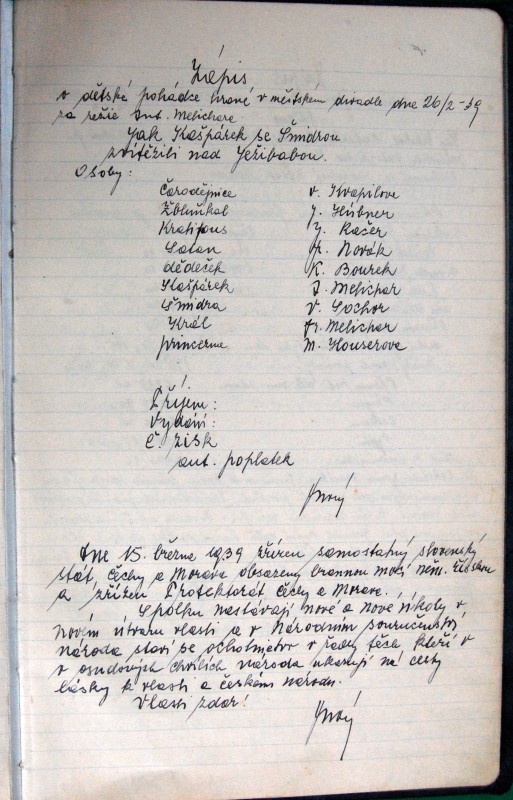 Zápis
o dětské pohádce hrané v městském divadle dne 26/2-39
za režie Ant. Melichara.
Jak Kašpárek se Šmidrou
zvítězili nad Ježibabou.
Osoby:
Čarodějnice V. Kvapilova
Žbluňkal J. Hübner
J. Kačer
Satan Fr. Novák
dědeček K. Bourek
Kašpárek J. Melichar
Šmidra V. Sochor
Král Fr. Melichar
princezna M. Houserova
Příjem:
Vydání:
Č. zisk
aut. poplatek
Dne 15. března 1939 zřízen samostatný slovenský
stát, Čechy a Morava obsazeny brannou mocí něm. říšskou
a zřízen Protektorát Čechy a Morava.
Spolku nastávají nové a nové úkoly v
novém útvaru vlasti a v Národním souručenství
národa staví se ochotnictvo v řady těch, kteří v
v osudových chvílích národa ukazují na cesty
lásky k vlasti a českému národu.
Vlasti zdar!